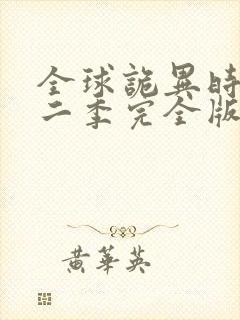 全球詭異時
二季完全版
黃華英